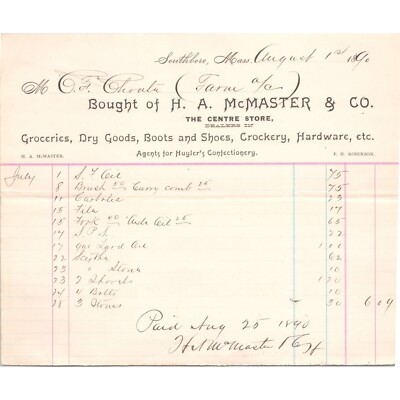 Southboro, Mass. August 1st 1890
M C. F. Choate (Farm a/c)
Bought of H. A. McMASTER & CO.
THE CENTRE STORE,
DEALERS IN
Groceries, Dry Goods, Boots and Shoes, Crockery, Hardware, etc.
H. A. McMASTER. Agents for Huyler's Confectionery. F. H. ROBINSON.
July 1 Oil 75
8 Brush 50 Curry comb 25 75
11 Carbolic 23
15 File 17
15 Fork 40 Oil 25 65
17
17 Lard Oil 1 00
22 Scythe 62
23 " Stone 10
23 2 Shovels 1 20
24 4 Bolts 10
28 3 Stones 30 6 09
Paid Aug 25 1890
H A McMaster & Co